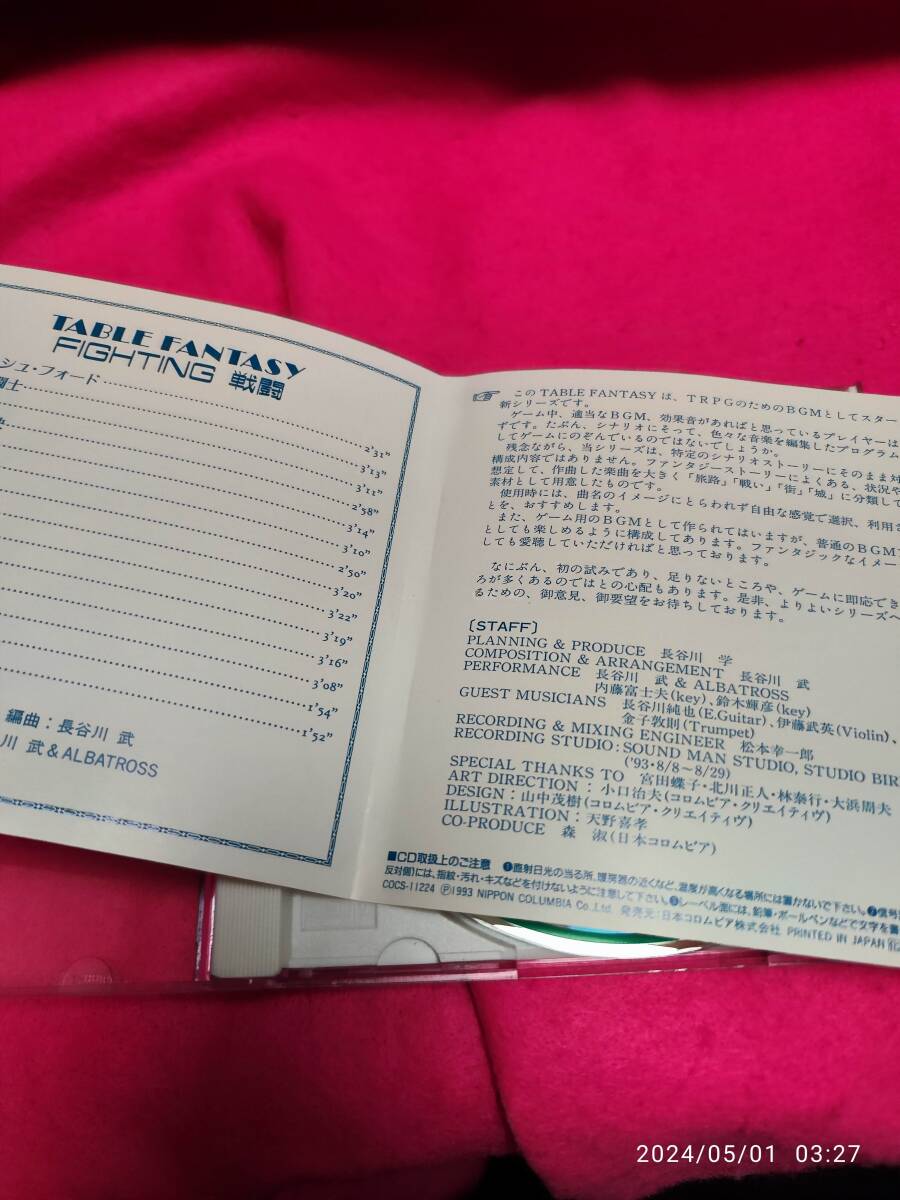 TABLE FANTASY
FIGHTING 戦闘
シュ・フォード
闘士
2'31"
3'13"
3'11"
2'58"
3'14"
3'10"
2'50"
3'20"
3'22"
3'19"
3'16"
3'08"
1'54"
1'52"
編曲：長谷川 武
川 武＆ALBATROSS
☞ このTABLE FANTASYは、TRPGのためのBGMとしてスター
新シリーズです。
ゲーム中、適当なBGM、効果音があればと思っているプレイヤーは
ずです。たぶん、シナリオにそって、色々な音楽を編集したプログラム
してゲームにのぞんでいるのではないでしょうか。
残念ながら、当シリーズは、特定のシナリオストーリーにそのまま対
構成内容ではありません。ファンタジーストーリーによくある、状況や
想定して、作曲した楽曲を大きく「旅路」「戦い」「街」「城」に分類して
素材として用意したものです。
使用時には、曲名のイメージにとらわれず自由な感覚で選択、利用さ
とを、おすすめします。
また、ゲーム用のBGMとして作られてはいますが、普通のBGM
としても楽しめるように構成してあります。ファンタジックなイメー
しても愛聴していただければと思っております。
なにぶん、初の試みであり、足りないところや、ゲームに即応でき
ろが多くあるのではとの心配もあります。是非、よりよいシリーズへ
るための、御意見、御要望をお待ちしております。
〔STAFF〕
PLANNING & PRODUCE 長谷川 学
COMPOSITION & ARRANGEMENT 長谷川 武
PERFORMANCE 長谷川 武 & ALBATROSS
内藤富士夫(key)、鈴木輝彦(key)
GUEST MUSICIANS 長谷川純也(E.Guitar)、伊藤武英(Violin)、
金子敦則(Trumpet)
RECORDING & MIXING ENGINEER 松本幸一郎
RECORDING STUDIO：SOUND MAN STUDIO, STUDIO BIR
('93・8/8〜8/29)
SPECIAL THANKS TO 宮田蝶子・北川正人・林泰行・大浜周夫
ART DIRECTION：小口治夫(コロムビア・クリエイティヴ)
DESIGN：山中茂樹(コロムビア・クリエイティヴ)
ILLUSTRATION：天野喜孝
CO-PRODUCE 森 淑(日本コロムビア)
■CD取扱上のご注意 ❶直射日光の当る所、暖房器の近くなど、温度が高くなる場所には置かないで下さい。❷信号
反対側)には、指紋・汚れ・キズなどを付けないように注意して下さい。❸レーベル面には、鉛筆・ボールペンなどで文字を書
COCS-11224 Ⓟ1993 NIPPON COLUMBIA Co.,Ltd. 発売元：日本コロムビア株式会社 PRINTED IN JAPAN
2024/05/01 03:27